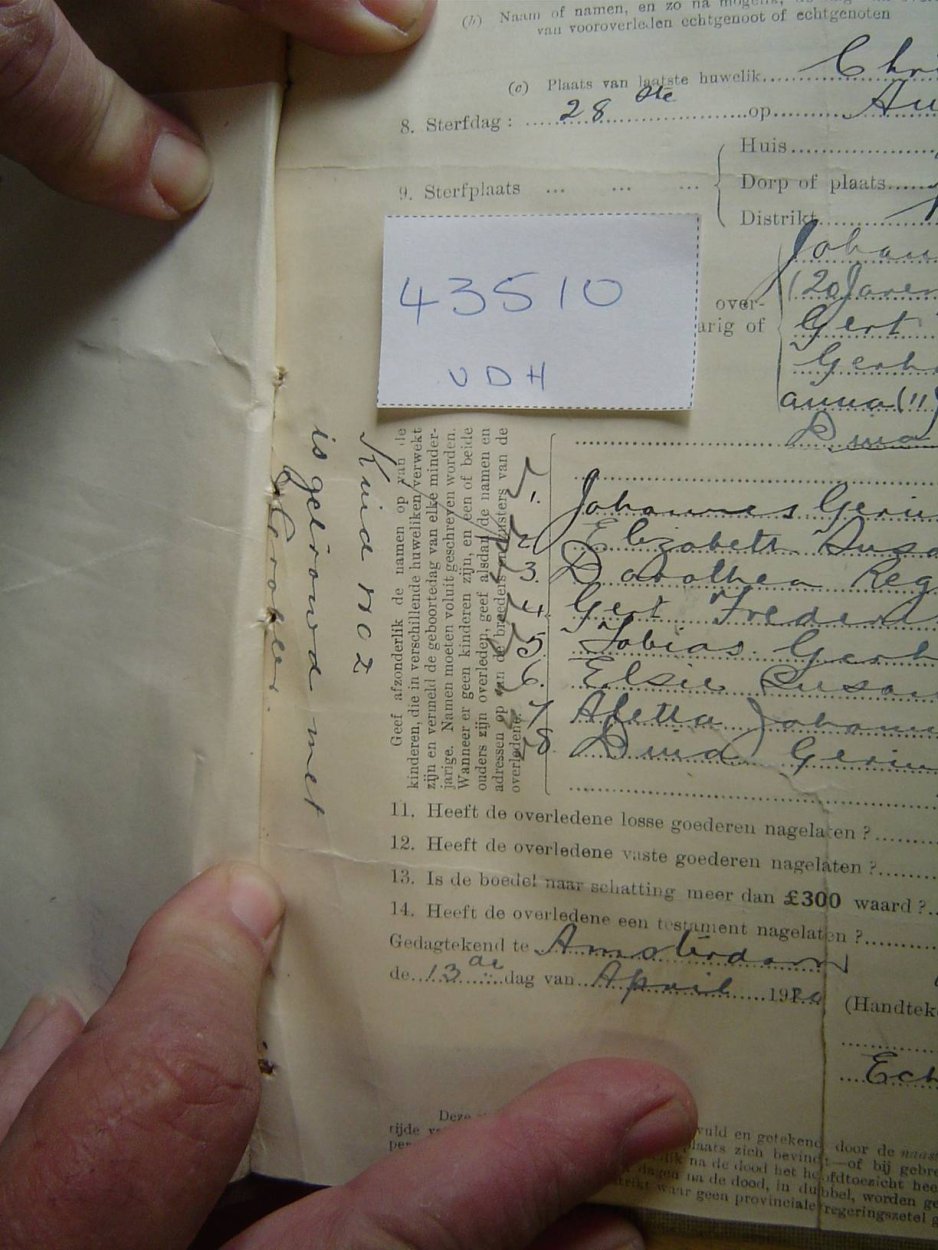 (b) Naam of namen, en zo na mogelik, de
van vooroverleden echtgenoot of echtgenoten
(c) Plaats van laatste huwelik Chri
8. Sterfdag : 28 ste op Au
Huis
9. Sterfplaats ... ... ... Dorp of plaats
Distrikt
43510
VDH
Johan
over- (20 Jaren
arig of Gert
Gerh
anna (11)
Dina
Kind no 2
is getrouwd met
Geef afzonderlik de namen op van de
kinderen, die in verschillende huweliken verwekt
zijn en vermeld de geboortedag van elke minder-
jarige. Namen moeten voluit geschreven worden.
Wanneer er geen kinderen zijn, en een of beide
ouders zijn overleden, geef alsdan de namen en
adressen op van de broeders en zusters van de
overledene.
1. Johannes Geri
2. Elizabeth Susa
3. Dorothea Reg
4. Gert Frederi
5. Tobias Gerh
6. Elsie Susan
7. Aletta Johann
8. Dina Geri
11. Heeft de overledene losse goederen nagelaten ?
12. Heeft de overledene vaste goederen nagelaten ?
13. Is de boedel naar schatting meer dan £300 waard ?
14. Heeft de overledene een testament nagelaten ?
Gedagtekend te Amsterdam
de 13 de dag van April 1920 (Handtek
Ech
Deze
rijde vuld en getekend door de naast
per plaats zich bevind:—of bij gebre
lik na de dood het hoofdtoezicht hee
dagen na de dood, in dubbel, worden ge
strikt waar geen provinciale regeringszetel g